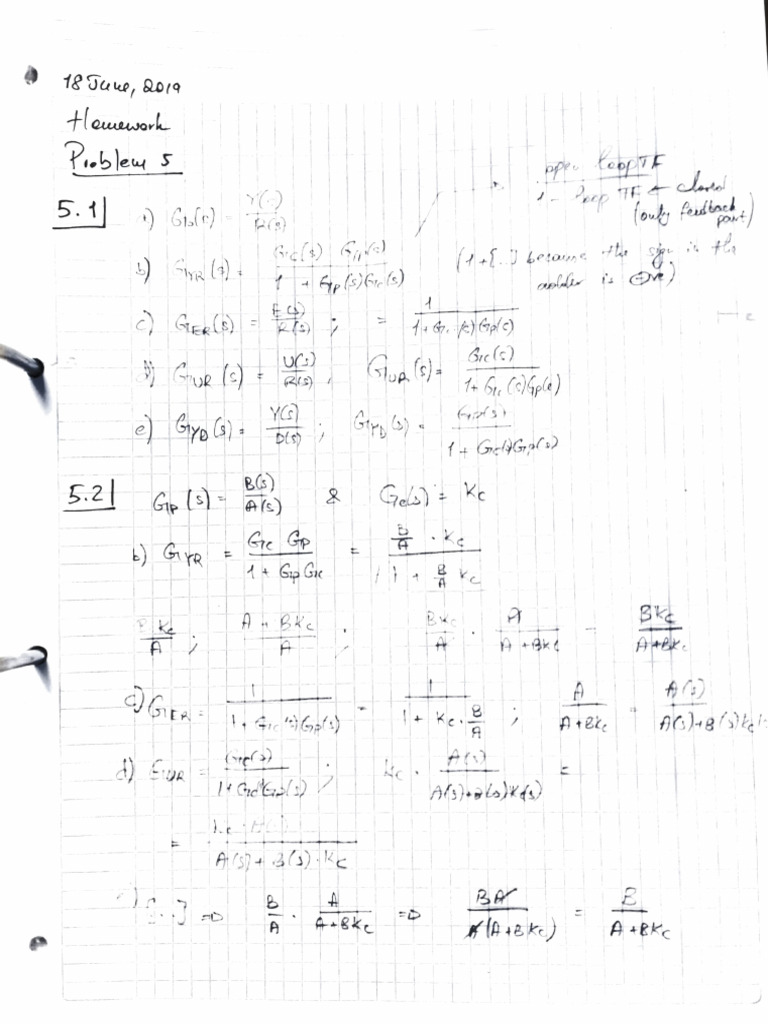 18 June, 2019
Homework
Problem 5
open loop TF
1 - Loop TF ← closed
(only feedback part)
5.1 a) G_D(s) = Y(s)/R(s)
b) G_YR(s) = G_C(s) G_p(s) / 1 + G_p(s)G_c(s)
(1+[..] because the sign in the
adder is ⊖ve)
c) G_ER(s) = E(s)/R(s) ; = 1 / 1+G_c(s)G_p(s)
d) G_UR(s) = U(s)/R(s) , G_UR(s) = G_c(s) / 1+G_c(s)G_p(s)
e) G_YD(s) = Y(s)/D(s) ; G_YD(s) = G_p(s) / 1+G_c(s)G_p(s)
5.2 G_p(s) = B(s)/A(s) & G_c(s) = K_c
b) G_YR = G_c G_p / 1 + G_p G_c = B/A · K_c / 1 + B/A K_c
B K_c / A ; A + BK_c / A ; BK_c / A · A / A + BK_c = BK_c / A+BK_c
c) G_ER = 1 / 1+G_c(s)G_p(s) = 1 / 1 + K_c · B/A ; A / A+BK_c = A(s) / A(s)+B(s)K_c
d) G_UR = G_c(s) / 1+G_c(s)G_p(s) ; K_c · A(s) / A(s)+B(s)K_c(s) =
= K_c · A(s) / A(s)+B(s)·K_c
[..] => B/A · A / A+BK_c => BA / A(A+BK_c) = B / A+BK_c